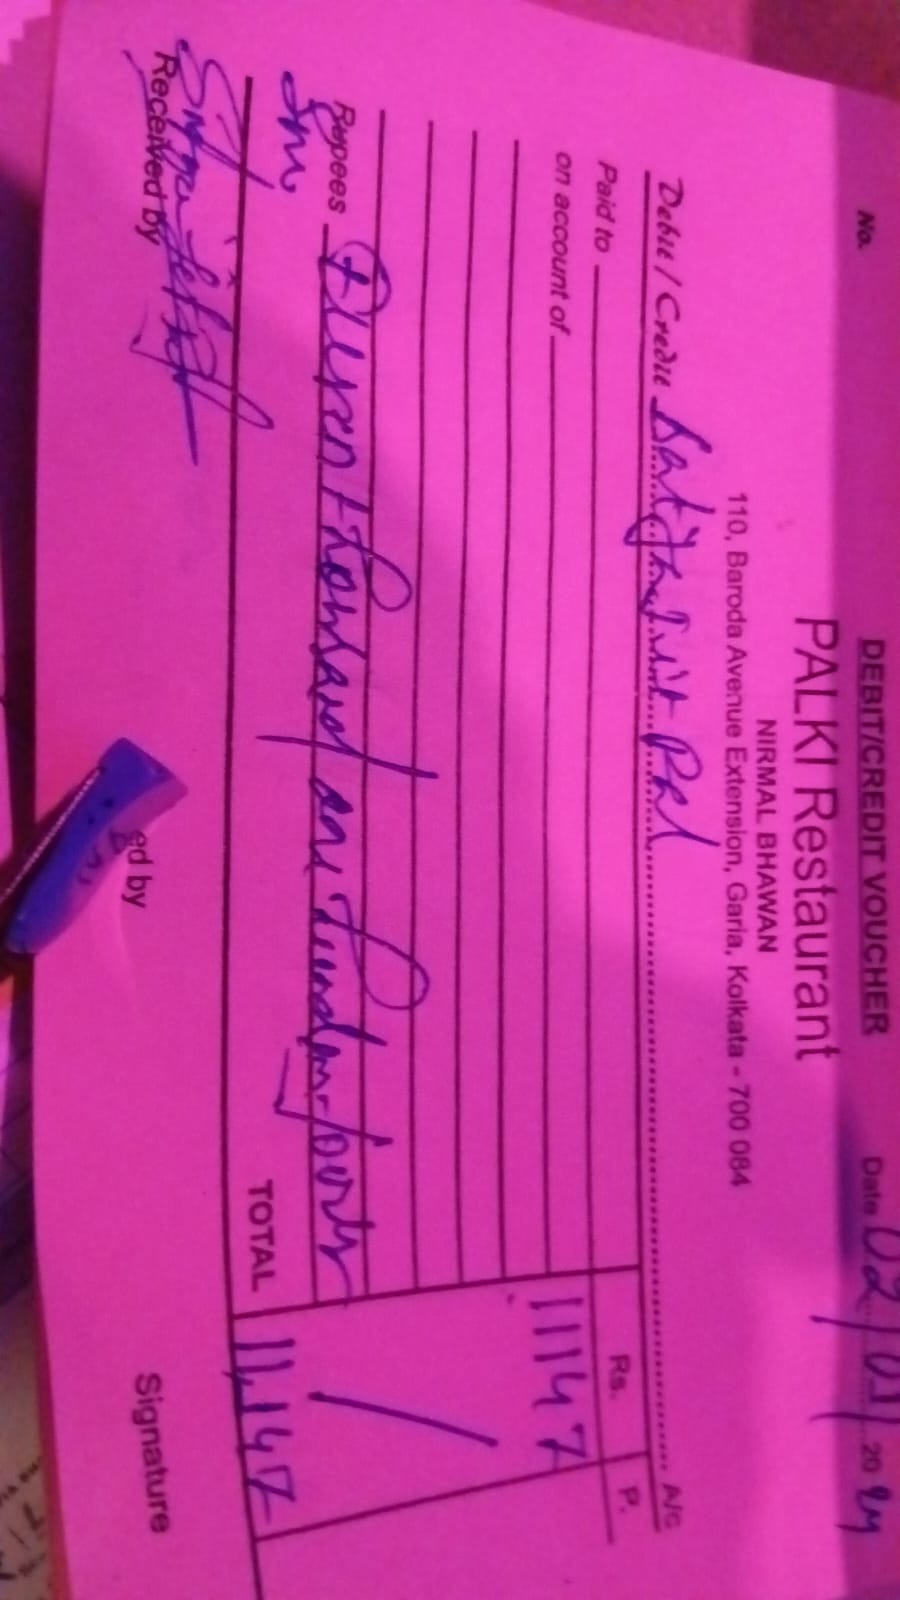 DEBIT/CREDIT VOUCHER
No. Date 02/01/ 20 24
PALKI Restaurant
NIRMAL BHAWAN
110, Baroda Avenue Extension, Garia, Kolkata - 700 084
Debit / Credit A/C
Paid to Rs. P.
on account of 11147
Rupees Eleven thousand one hundred forty
TOTAL 11,147
Received by ed by Signature